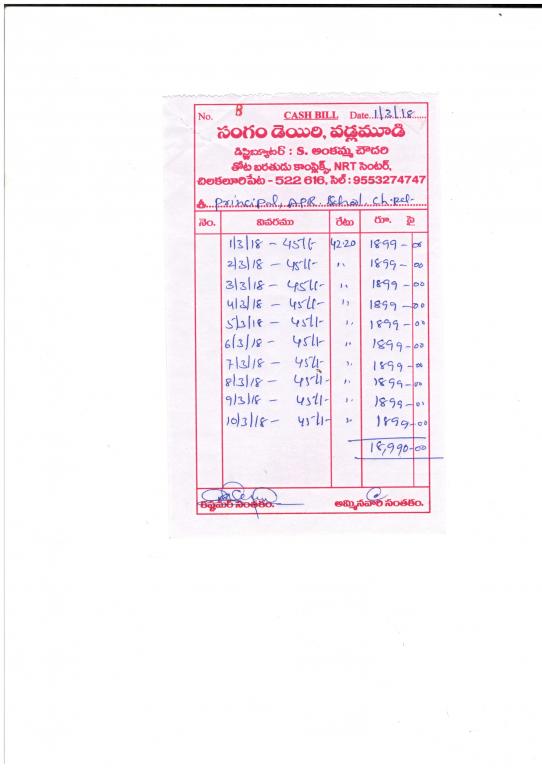 No. 8 CASH BILL Date. 1/3/18
సంగం డెయిరి, వడ్లమూడి
డిస్ట్రిబ్యూటర్ : S. అంకమ్మ చౌదరి
తోట బరతుడు కాంప్లెక్స్, NRT సెంటర్,
చిలకలూరిపేట - 522 616, సెల్ : 9553274747
శ్రీ Principal, APR School, Ch.pet
నెం. వివరము రేటు రూ. పై
1/3/18 - 45 l- 42-20 1899-00
2/3/18 - 45 l- ,, 1899-00
3/3/18 - 45 l- ,, 1899-00
4/3/18 - 45 l- ,, 1899-00
5/3/18 - 45 l- ,, 1899-00
6/3/18 - 45 l- ,, 1899-00
7/3/18 - 45 l- ,, 1899-00
8/3/18 - 45 l- ,, 1899-00
9/3/18 - 45 l- ,, 1899-00
10/3/18 - 45 l- ,, 1899-00
18,990-00
కస్టమర్ సంతకం. అమ్మినవారి సంతకం.